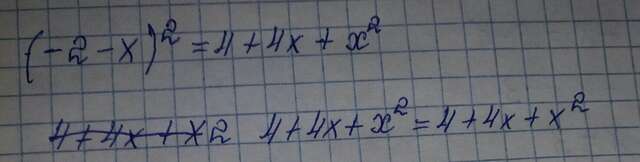 (-2-x)² = 4+4x+x²
4+4x+x2 4+4x+x² = 4+4x+x²